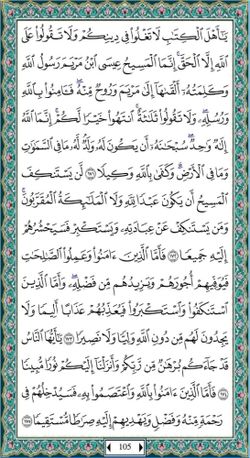 يَٰٓأَهۡلَ ٱلۡكِتَٰبِ لَا تَغۡلُواْ فِي دِينِكُمۡ وَلَا تَقُولُواْ عَلَى
ٱللَّهِ إِلَّا ٱلۡحَقَّۚ إِنَّمَا ٱلۡمَسِيحُ عِيسَى ٱبۡنُ مَرۡيَمَ رَسُولُ ٱللَّهِ
وَكَلِمَتُهُۥٓ أَلۡقَىٰهَآ إِلَىٰ مَرۡيَمَ وَرُوحٞ مِّنۡهُۖ فَـَٔامِنُواْ بِٱللَّهِ
وَرُسُلِهِۦۖ وَلَا تَقُولُواْ ثَلَٰثَةٌۚ ٱنتَهُواْ خَيۡرٗا لَّكُمۡۚ إِنَّمَا ٱللَّهُ
إِلَٰهٞ وَٰحِدٞۖ سُبۡحَٰنَهُۥٓ أَن يَكُونَ لَهُۥ وَلَدٞۘ لَّهُۥ مَا فِي ٱلسَّمَٰوَٰتِ
وَمَا فِي ٱلۡأَرۡضِۗ وَكَفَىٰ بِٱللَّهِ وَكِيلٗا ١٧١ لَّن يَسۡتَنكِفَ
ٱلۡمَسِيحُ أَن يَكُونَ عَبۡدٗا لِّلَّهِ وَلَا ٱلۡمَلَٰٓئِكَةُ ٱلۡمُقَرَّبُونَۚ
وَمَن يَسۡتَنكِفۡ عَنۡ عِبَادَتِهِۦ وَيَسۡتَكۡبِرۡ فَسَيَحۡشُرُهُمۡ
إِلَيۡهِ جَمِيعٗا ١٧٢ فَأَمَّا ٱلَّذِينَ ءَامَنُواْ وَعَمِلُواْ ٱلصَّٰلِحَٰتِ
فَيُوَفِّيهِمۡ أُجُورَهُمۡ وَيَزِيدُهُم مِّن فَضۡلِهِۦۖ وَأَمَّا ٱلَّذِينَ
ٱسۡتَنكَفُواْ وَٱسۡتَكۡبَرُواْ فَيُعَذِّبُهُمۡ عَذَابًا أَلِيمٗا وَلَا
يَجِدُونَ لَهُم مِّن دُونِ ٱللَّهِ وَلِيّٗا وَلَا نَصِيرٗا ١٧٣ يَٰٓأَيُّهَا ٱلنَّاسُ
قَدۡ جَآءَكُم بُرۡهَٰنٞ مِّن رَّبِّكُمۡ وَأَنزَلۡنَآ إِلَيۡكُمۡ نُورٗا مُّبِينٗا
١٧٤ فَأَمَّا ٱلَّذِينَ ءَامَنُواْ بِٱللَّهِ وَٱعۡتَصَمُواْ بِهِۦ فَسَيُدۡخِلُهُمۡ فِي
رَحۡمَةٖ مِّنۡهُ وَفَضۡلٖ وَيَهۡدِيهِمۡ إِلَيۡهِ صِرَٰطٗا مُّسۡتَقِيمٗا ١٧٥
105